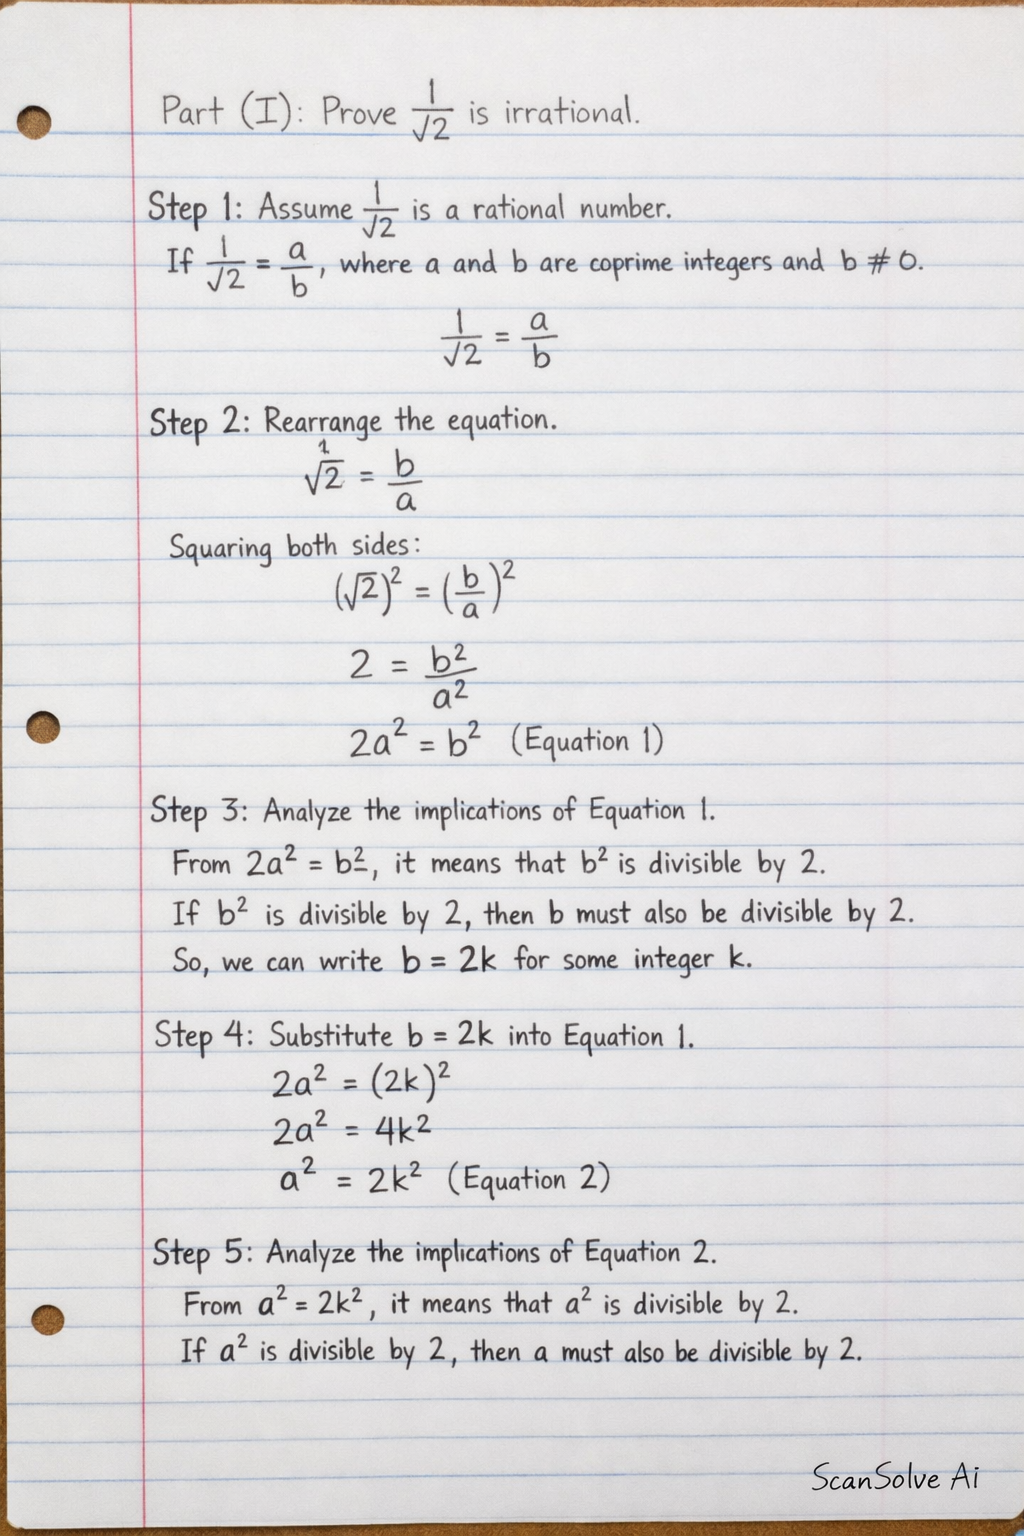 Part (I): Prove 1/√2 is irrational.
Step 1: Assume 1/√2 is a rational number.
If 1/√2 = a/b, where a and b are coprime integers and b # 0.
1/√2 = a/b
Step 2: Rearrange the equation.
√2 = b/a
Squaring both sides:
(√2)² = (b/a)²
2 = b²/a²
2a² = b² (Equation 1)
Step 3: Analyze the implications of Equation 1.
From 2a² = b², it means that b² is divisible by 2.
If b² is divisible by 2, then b must also be divisible by 2.
So, we can write b = 2k for some integer k.
Step 4: Substitute b = 2k into Equation 1.
2a² = (2k)²
2a² = 4k²
a² = 2k² (Equation 2)
Step 5: Analyze the implications of Equation 2.
From a² = 2k², it means that a² is divisible by 2.
If a² is divisible by 2, then a must also be divisible by 2.
ScanSolve Ai